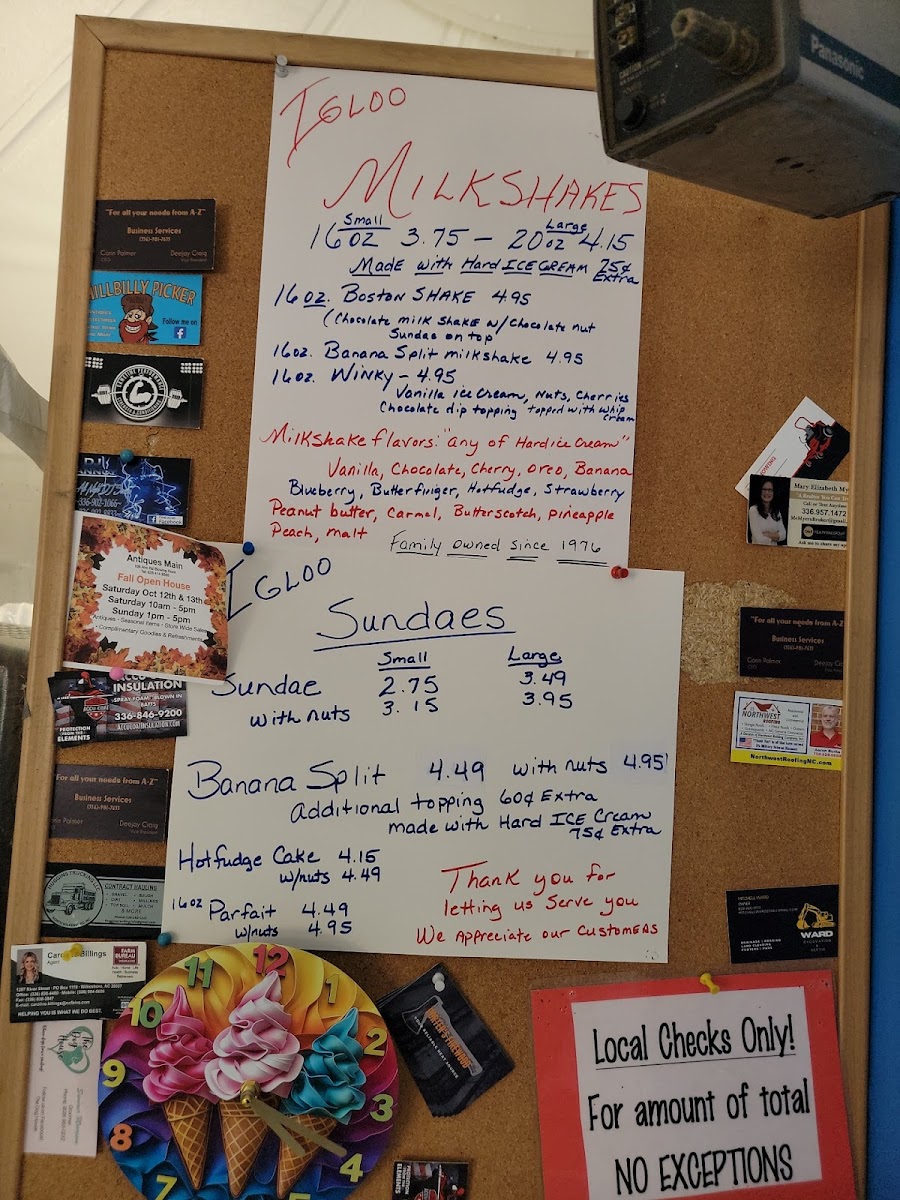 IGLOO
MILKSHAKES
Small Large
16 oz 3.75 – 20 oz 4.15
Made with Hard ICE CREAM 75¢ Extra
16 oz. Boston SHAKE 4.95
(Chocolate milk Shake w/ Chocolate nut
Sundae on top
16 oz. Banana Split milkshake 4.95
16 oz. Winky – 4.95
Vanilla ice Cream, Nuts, Cherries
Chocolate dip topping topped with whip cream
Milkshake flavors: "any of Hard ice Cream"
Vanilla, Chocolate, Cherry, Oreo, Banana
Blueberry, Butterfinger, Hotfudge, Strawberry
Peanut butter, Carmel, Butterscotch, pineapple
Peach, malt
Family owned since 1976
IGLOO
Sundaes
Small Large
Sundae 2.75 3.49
with nuts 3.15 3.95
Banana Split 4.49 with nuts 4.95
Additional topping 60¢ Extra
made with Hard ICE Cream
75¢ Extra
Hotfudge Cake 4.15
w/nuts 4.49
16 oz Parfait 4.49
w/nuts 4.95
Thank you for
letting us serve you
We Appreciate our Customers
Panasonic
"For all your needs from A-Z"
Business Services
Deejay Craig
HILLBILLY PICKER
Follow me on
Antiques Main
Fall Open House
Saturday Oct 12th & 13th
Saturday 10am - 5pm
Sunday 1pm - 5pm
Antiques - Seasonal Items - Store Wide Sales
Complimentary Goodies & Refreshments
INSULATION
336-846-9200
PROTECTION
FROM THE
ELEMENTS
For all your needs from A-Z"
Business Services
Deejay Craig
CONTRACT HAULING
& MORE
Billings
Agent
FARM
BUREAU
HELPING YOU IS WHAT WE DO BEST.
Mary Elizabeth My
336.957.1472
"For all your needs from A-Z
Business Services
NORTHWEST
NorthwestRoofingNC.com
WARD
12 1 2 3 4 5 7 8 9 10 11
Local Checks Only!
For amount of total
NO EXCEPTIONS